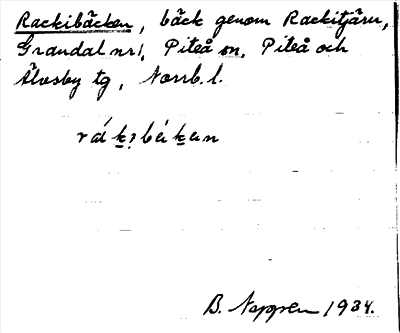 Rackibäcken, bäck genom Rackitjärn,
Grandal nr 1, Piteå sn, Piteå och
Älvsby tg, Norrb. l.
B. Noppen 1934.